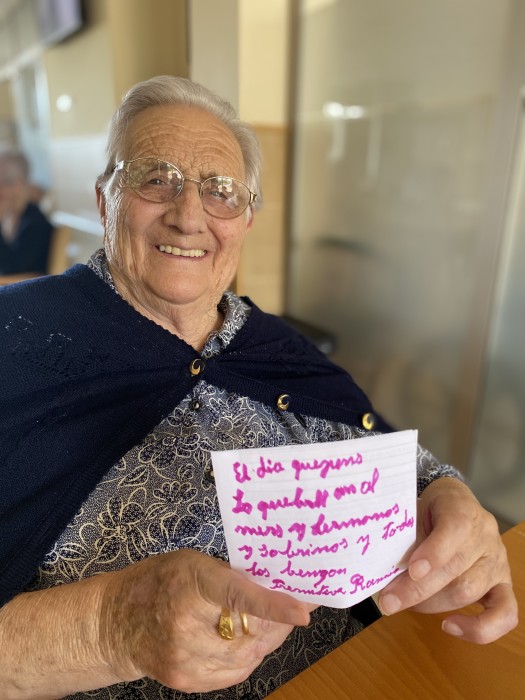 El dia quepens
Lo que ball om al
mers y lermonos
y sobrinos y todos
los bengan
Premitiva Ramis